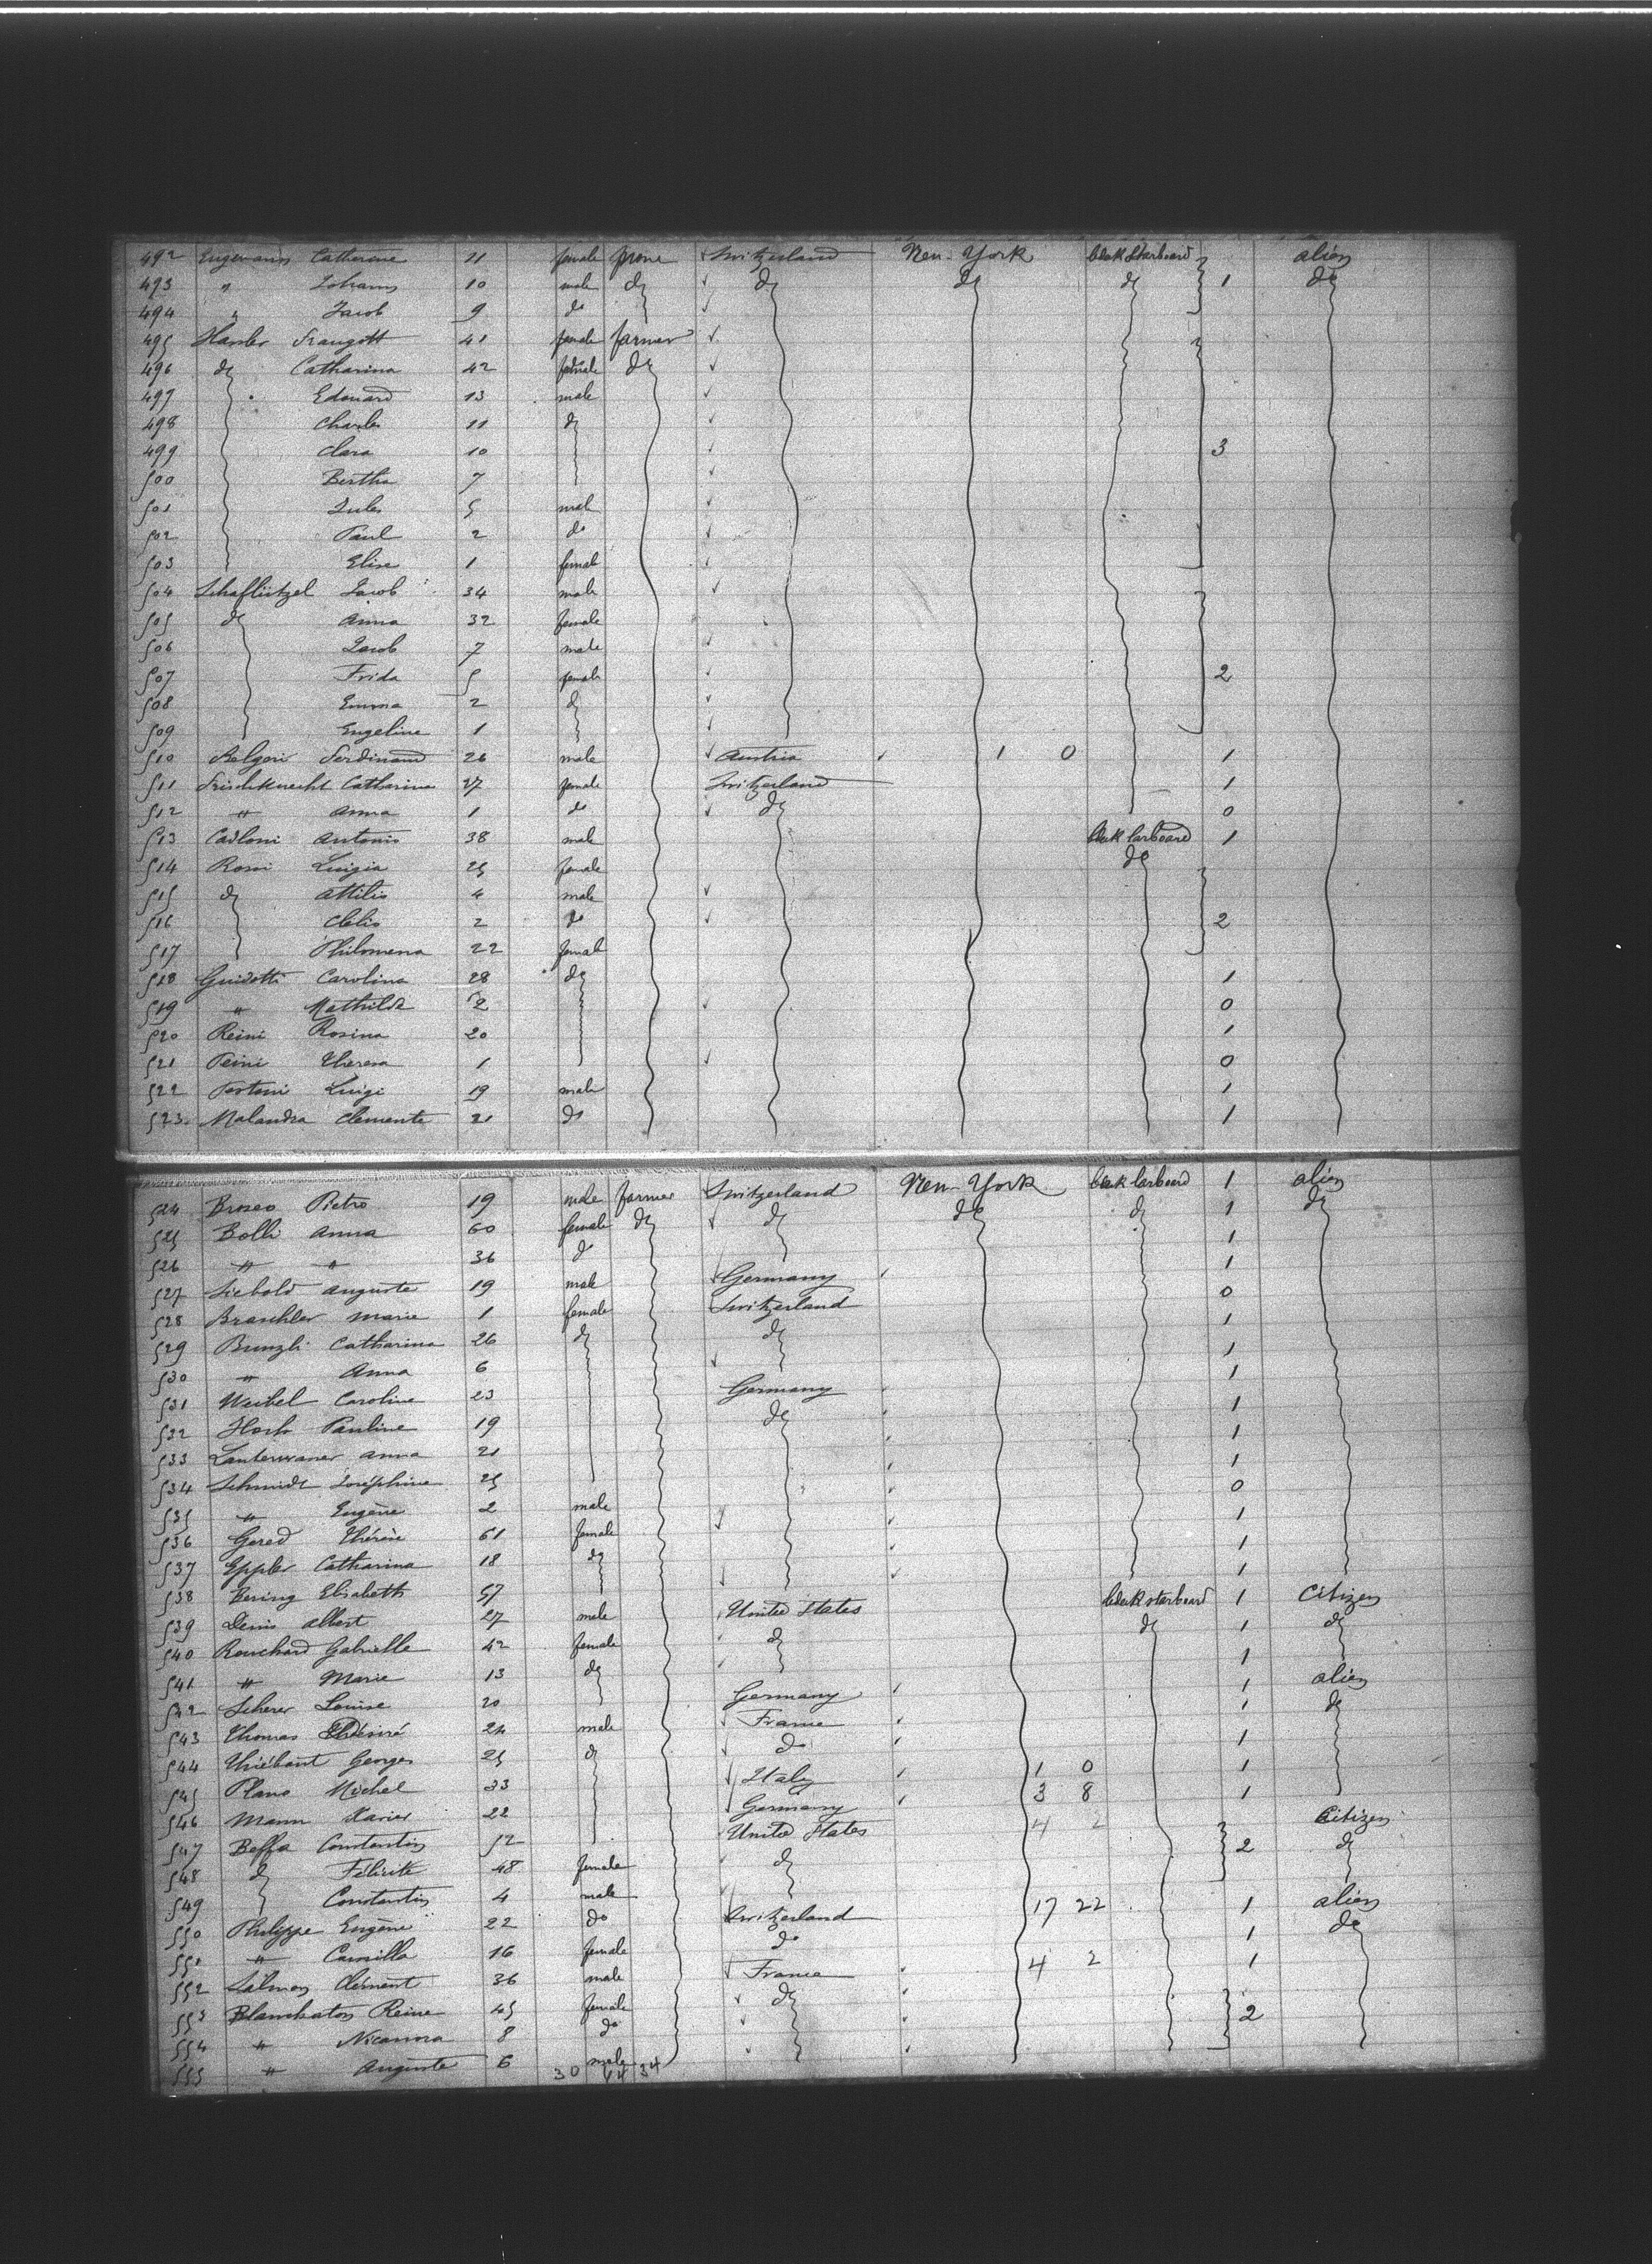 492 Catherine 11 female Switzerland New-York alien
493 " Johann 10 male do do do do 1 do
494 " Jacob 9 do
495 41 female farmer
496 do Catharina 42 female do
497 Edouard 13 male
498 Charles 11 do
499 Clara 10 3
500 Bertha 7
501 Jules 5 male
502 Paul 2 do
503 Elise 1 female
504 Schaflützel Jacob 34 male
505 do Anna 32 female
506 Jacob 7 male
507 Frida 5 female 2
508 Emma 2 do
509 Engeline 1
510 Ferdinand 26 male Austria 1 0 1
511 Frischknecht Catharina 27 female Switzerland 1
512 " Anna 1 do do 0
513 Cadloni Antonio 38 male larboard 1
514 Rossi Luigia 25 female do
515 do Attilio 4 male
516 Clelio 2 do 2
517 Philomena 22 female
518 Guidotti Carolina 28 do 1
519 " Mathilde 2 0
520 Reini Rosina 20 1
521 Theresa 1 0
522 Luigi 19 male 1
523 Malandra Clemente 21 do 1
524 Pietro 19 male farmer Switzerland New-York larboard 1 alien
525 Bolli Anna 60 female do do do do 1 do
526 " " 36 do 1
527 Siebold Auguste 19 male Germany 1
528 Braschler Marie 1 female Switzerland 0
529 Bunzli Catharina 26 do do 1
530 " Anna 6 1
531 Weibel Caroline 23 Germany 1
532 Pauline 19 do 1
533 Anna 21 1
534 Schmidt Joséphine 25 1
535 " Eugène 2 male 0
536 Thérèse 61 female 1
537 Eppler Catharina 18 do 1
538 Elisabeth 57 1
539 Denis Albert 27 male United States starboard 1 Citizen
540 Rouchard Gabrielle 42 female do do 1 do
541 " Marie 13 do 1
542 Scherer Louise 20 Germany 1 alien
543 Thomas 24 male France 1 do
544 Thiébaut Georges 25 do do 1
545 Plano Michel 33 Italy 1 0 1
546 Mann Xavier 22 Germany 3 8 1
547 Beffa Constantin 52 United States 4 2 Citizen
548 do Félicité 48 female do 2 do
549 Constantin 4 male
550 Philippe Eugène 22 do Switzerland 17 22 1 alien
551 " Camilla 16 female do 1 do
552 Salmon Clément 36 male France 4 2 1
553 Reine 45 female do
554 " 8 do 2
555 " Auguste 6 male
30 34